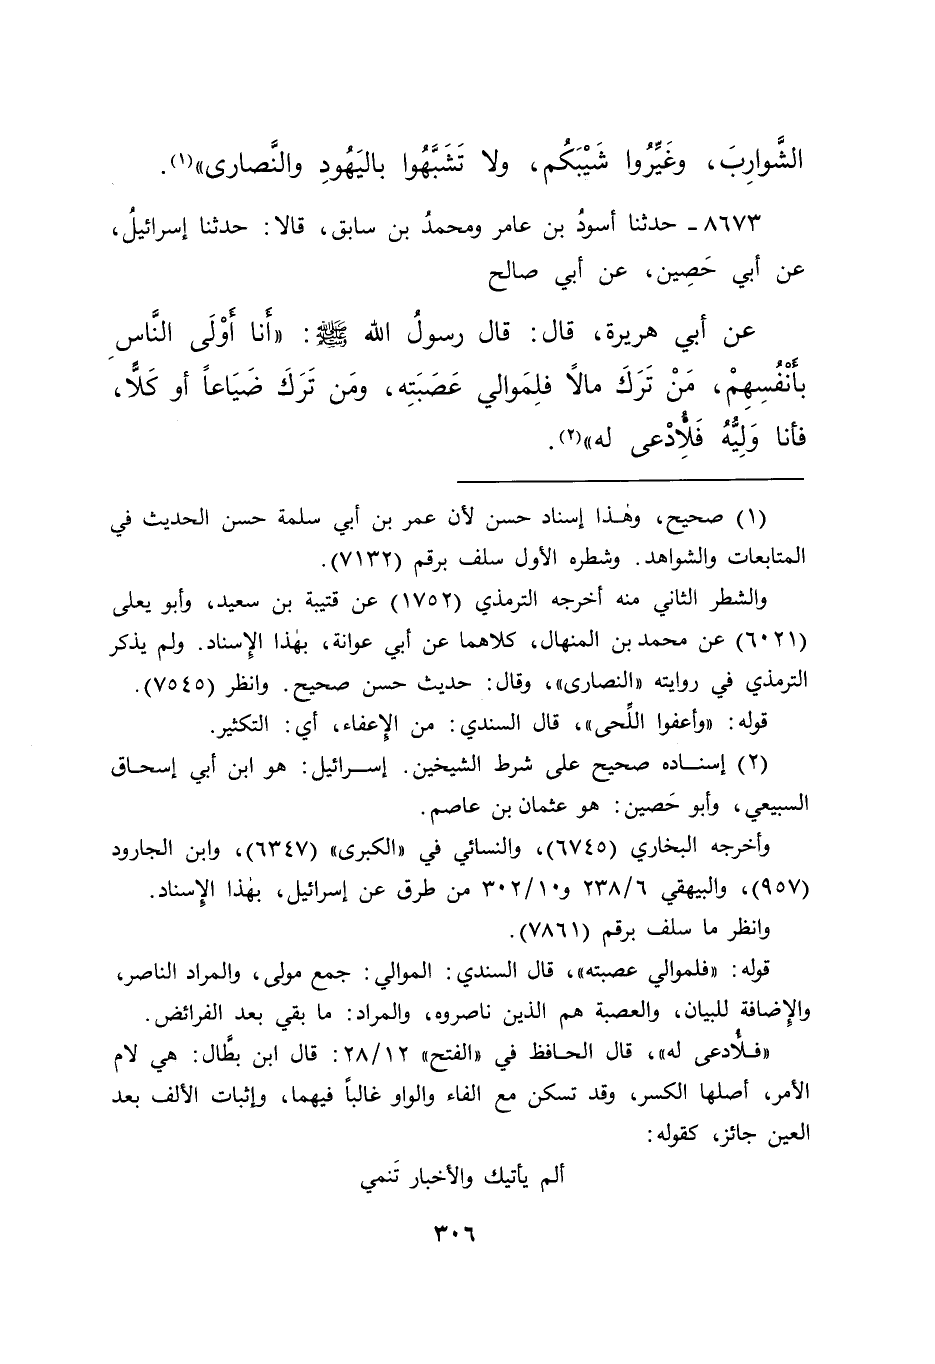 الشَّوارِبَ، وغَيِّرُوا شَيْبَكُم، ولا تَشَبَّهُوا باليَهُودِ والنَّصارى»(١).
٨٦٧٣ ـ حدثنا أسودُ بن عامر ومحمدُ بن سابق، قالا: حدثنا إسرائيلُ،
عن أبي حَصِين، عن أبي صالح
عن أبي هريرة، قال: قال رسولُ الله ﷺ: «أَنا أَوْلَى النَّاسِ
بأَنْفُسِهِمْ، مَنْ تَرَكَ مالًا فلِمَوالي عَصَبَتِه، ومَن تَرَكَ ضَيَاعاً أو كَلًّا،
فأنا وَلِيُّهُ فَلِأُدْعى له»(٢).
(١) صحيح، وهٰذا إسناد حسن لأن عمر بن أبي سلمة حسن الحديث في
المتابعات والشواهد. وشطره الأول سلف برقم (٧١٣٢).
والشطر الثاني منه أخرجه الترمذي (١٧٥٢) عن قتيبة بن سعيد، وأبو يعلى
(٦٠٢١) عن محمد بن المنهال، كلاهما عن أبي عوانة، بهٰذا الإسناد. ولم يذكر
الترمذي في روايته «النصارى»، وقال: حديث حسن صحيح. وانظر (٧٥٤٥).
قوله: «وأعفوا اللِّحى»، قال السندي: من الإعفاء، أي: التكثير.
(٢) إسناده صحيح على شرط الشيخين. إسرائيل: هو ابن أبي إسحاق
السبيعي، وأبو حَصين: هو عثمان بن عاصم.
وأخرجه البخاري (٦٧٤٥)، والنسائي في «الكبرى» (٦٣٤٧)، وابن الجارود
(٩٥٧)، والبيهقي ٢٣٨/٦ و٣٠٢/١٠ من طرق عن إسرائيل، بهٰذا الإسناد.
وانظر ما سلف برقم (٧٨٦١).
قوله: «فلموالي عصبته»، قال السندي: الموالي: جمع مولى، والمراد الناصر،
والإضافة للبيان، والعصبة هم الذين ناصروه، والمراد: ما بقي بعد الفرائض.
«فلأُدعى له»، قال الحافظ في «الفتح» ٢٨/١٢: قال ابن بطَّال: هي لام
الأمر، أصلها الكسر، وقد تسكن مع الفاء والواو غالباً فيهما، وإثبات الألف بعد
العين جائز، كقوله:
ألم يأتيك والأخبار تَنمي
٣٠٦